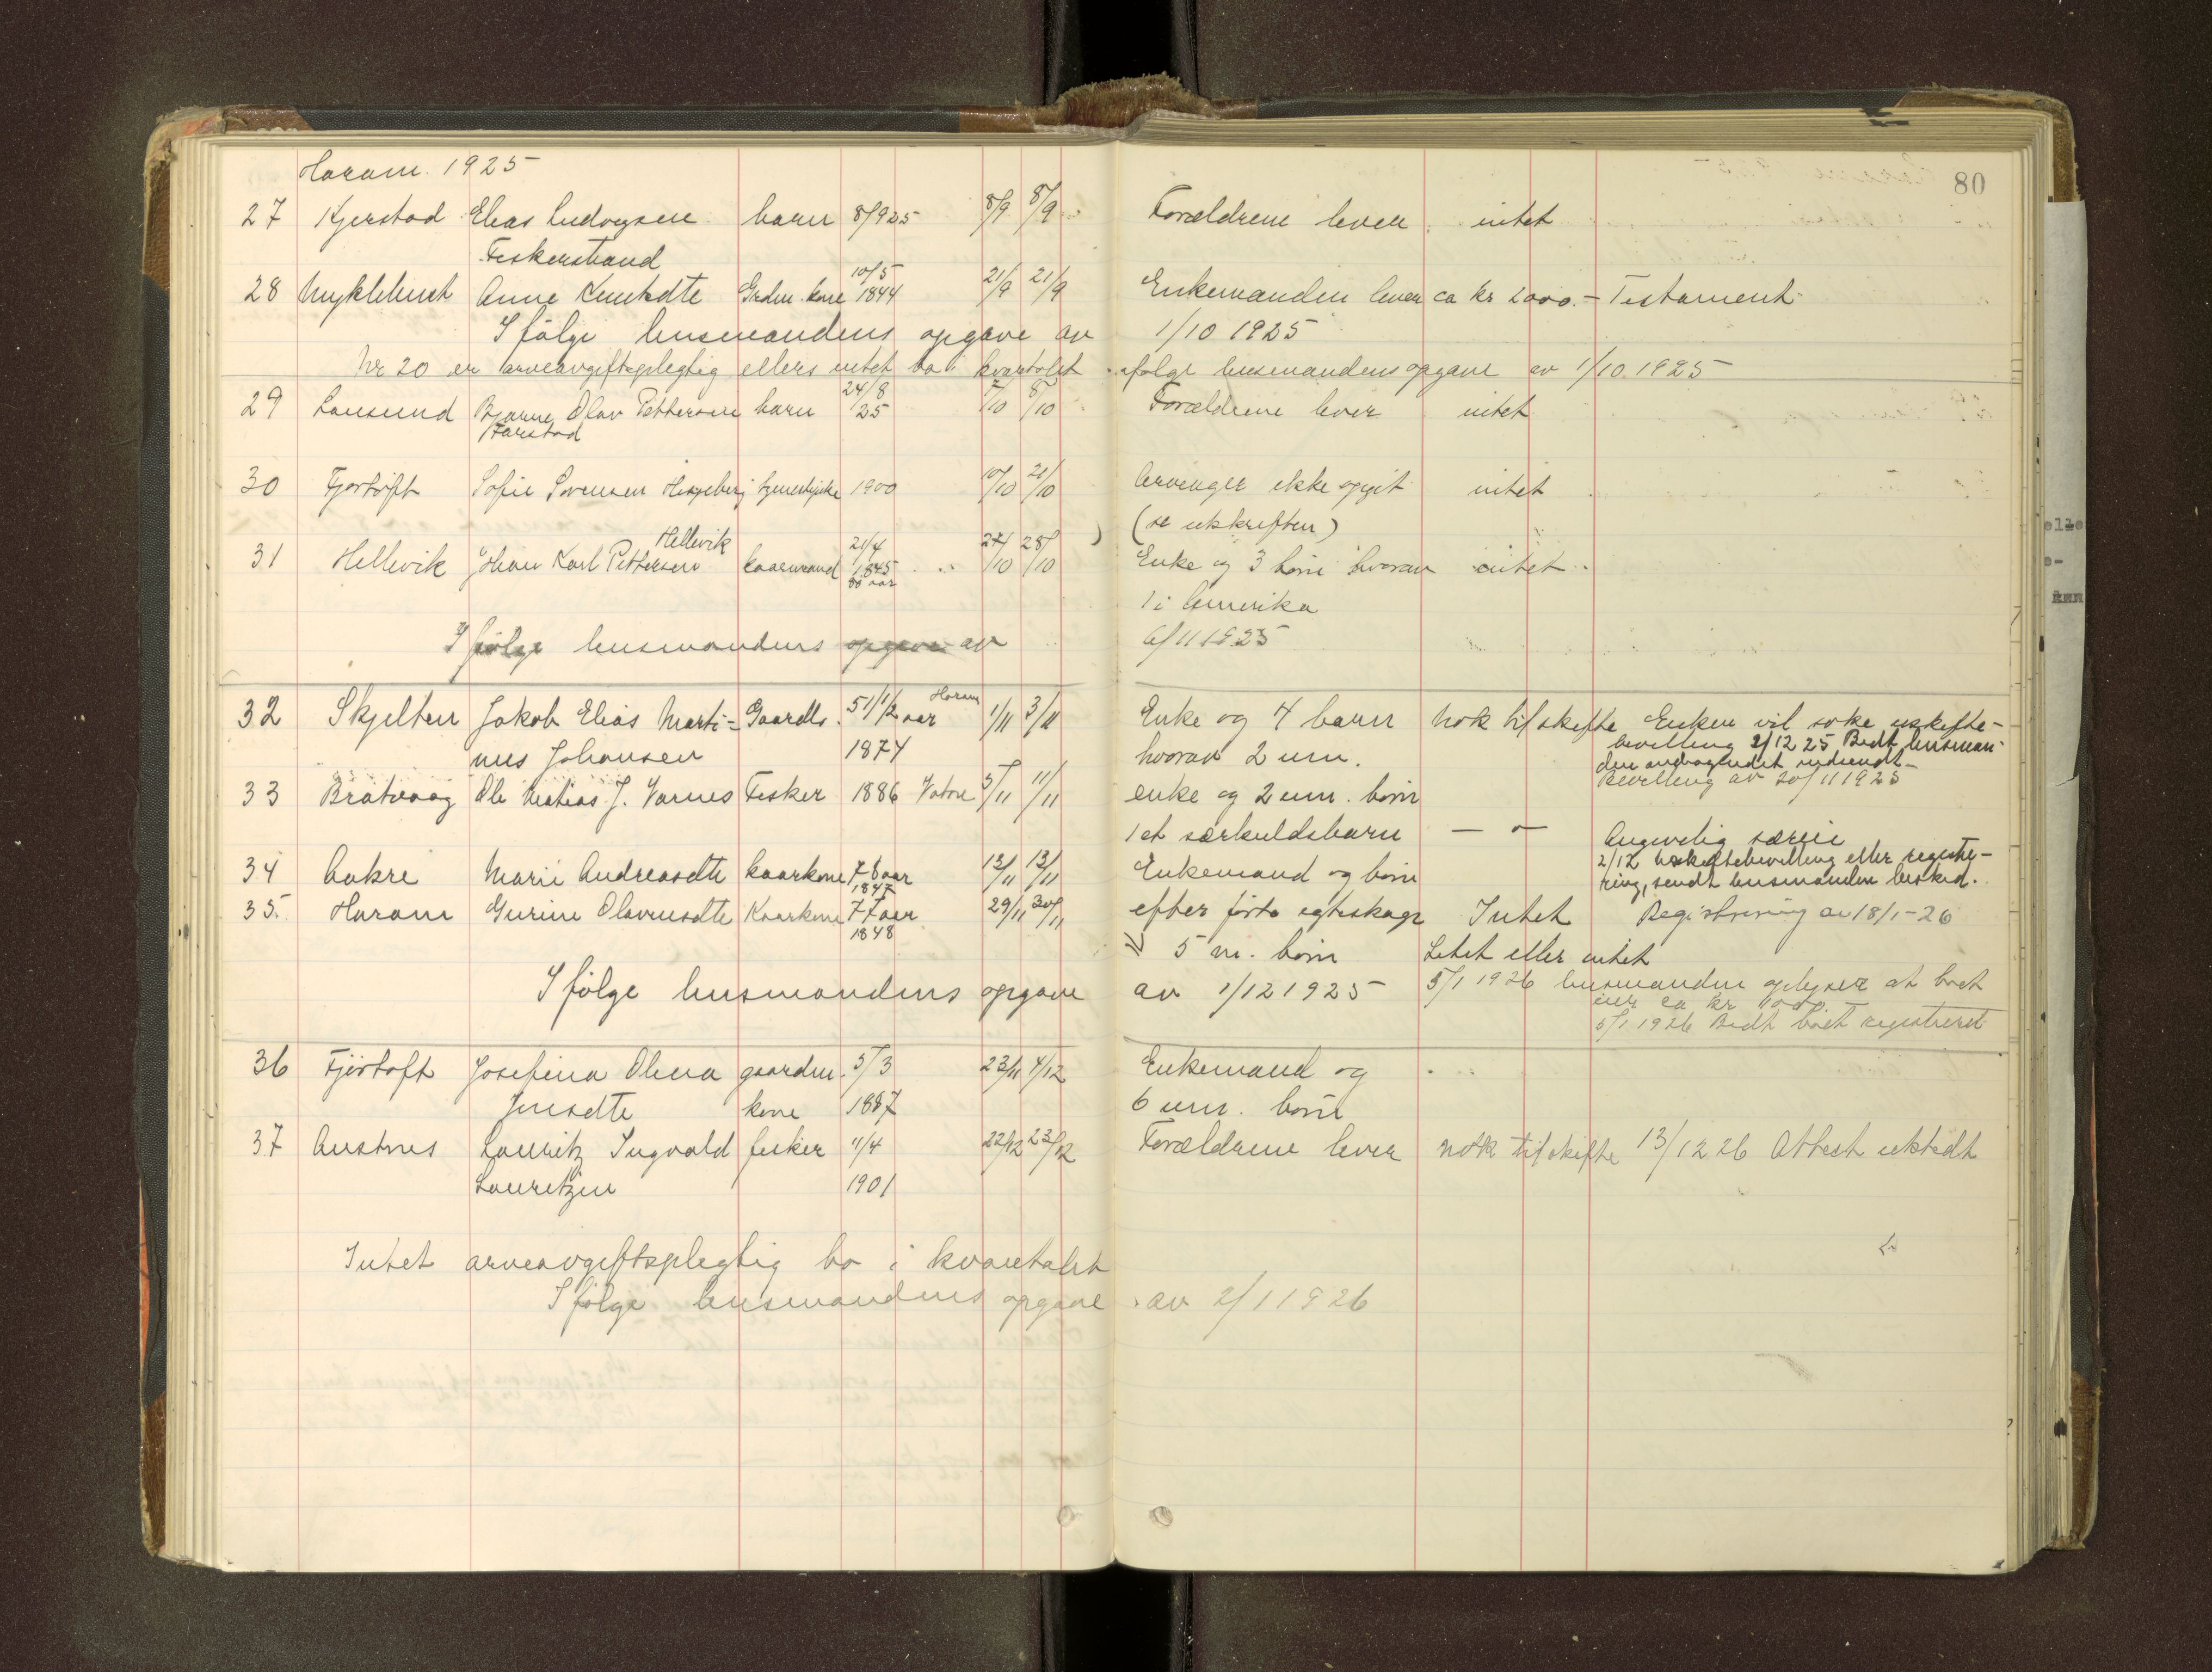 Haram. 1925
80
27 Kjerstad Elias Ludvigsen barn 8/9 25 8/9 8/9 Forældrene lever intet
Fiskerstrand
28 Myklebust Anne Knutsdtr Grdm. kone 10/5 1844 21/9 21/9 Enkemanden lever ca kr 2000.- Testament
Ifølge lensmandens opgave av 1/10 1925
Nr 20 er arveavgiftspligtig ellers intet bo i kvartalet ifølge lensmandens opgave av 1/10 1925
29 Longund Bjarne Olav Pettersen barn 24/8 25 7/10 8/10 Forældrene lever intet
Harstad
30 Fjørtoft Sofie Sørensen tjenestepike 1900 10/10 21/10 Arvinger ikke opgit intet
(se utskriften)
31 Hellevik Johan Karl Pettersen Hellevik kaarmand 21/4 1845 80 aar 27/10 28/10 Enke og 3 børn hvorav intet
1 i Amerika
Ifølge lensmandens opgave av 6/11 1925
32 Skjelten Jakob Elias Marti- Gaardbr. 51 1/2 aar Haram 1/11 3/11 Enke og 4 barn Nok til skifte Enken vil søke uskifte-
nus Johansen 1874 hvorav 2 um. bevilling 2/12 25 Bedt lensman-
den andragendet indsendt
Bevilling av 20/11 1925
33 Bratvaag Ole Matias J. Varnes Fisker 1886 Vatne 5/11 11/11 enke og 2 um. børn
1 et særkuldsbarn — " — Angivelig særeie
34 Aakre Marie Andreasdtr kaarkone 78 aar 1847 13/11 13/11 Enkemand og børn 2/12 Uskiftebevilling eller registre-
ring, sendt lensmanden beskid.
35. Haram Gurine Olavusdtr Kaarkone 77 aar 1848 29/11 30/11 efter første egteskap Intet Registrering av 18/1-26
5 m. børn Litet eller intet
Ifølge lensmandens opgave av 1/12 1925 5/1 1926 lensmanden oplyser at boet
eier ca kr 1000.
5/1 1926 Bedt boet registreret
36 Fjørtoft Josefina Olena gaardm. 5/3 23/11 4/12 Enkemand og
Jensdtr kone 1887 6 um. børn
37 Austnes Lauritz Ingvald fisker 4/4 22/12 23/12 Forældrene lever nok til skifte 13/12 26 Attest utstedt
Lauritzen 1901
Intet arveavgiftspligtig bo i kvartalet
Ifølge lensmandens opgave av 2/1 1926